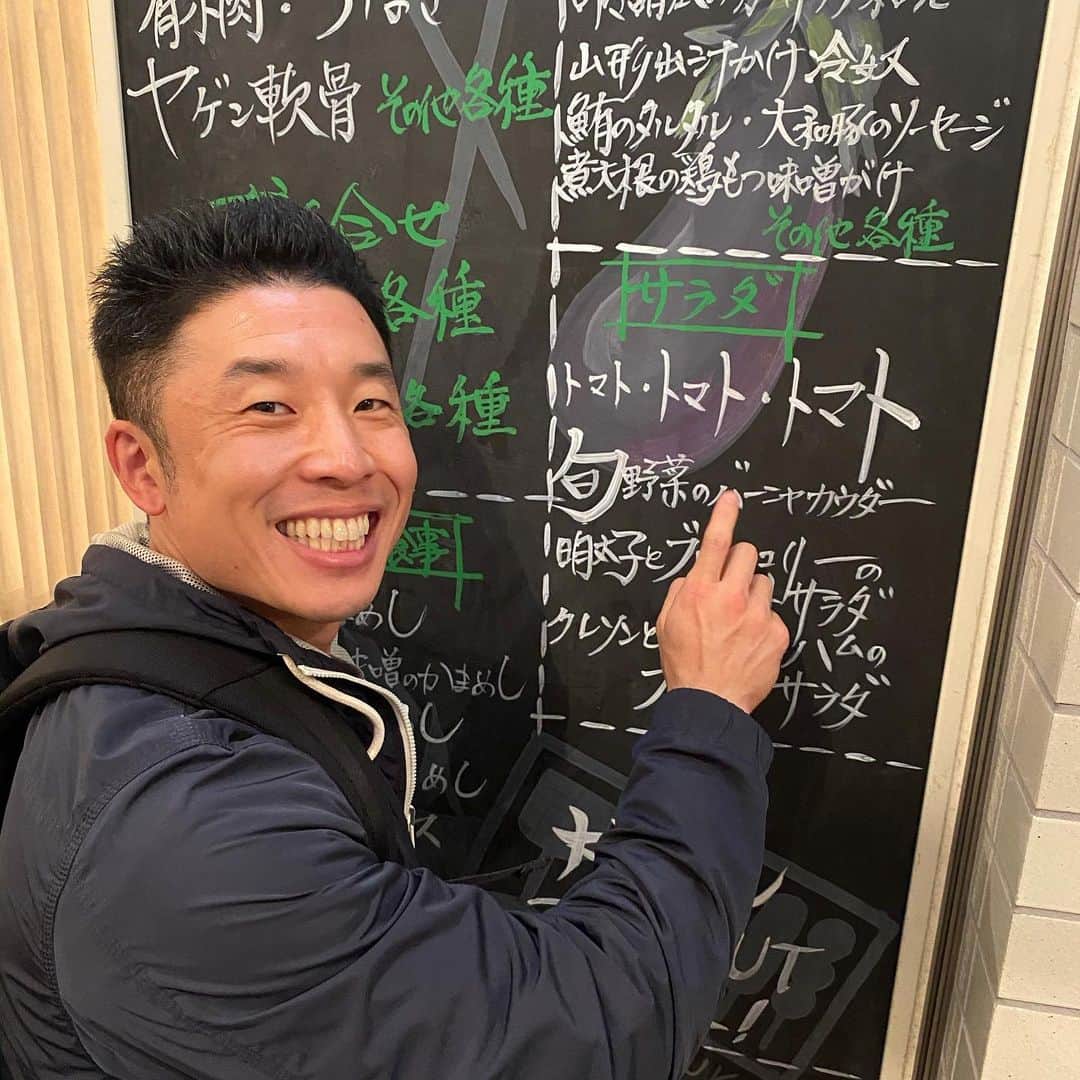 ヤゲン軟骨 その他各種
合せ
各種
各種
食事
めし
味噌のかまめし
し
めし
ス
山形出汁かけ冷奴
鮪のタルタル・大和豚のソーセージ
煮大根の鶏もつ味噌がけ
その他各種
サラダ
トマト・トマト・トマト
旬野菜のバーニャカウダー
明太子とブ リーの
サラダ
クレソンと ハムの
サラダ
UT